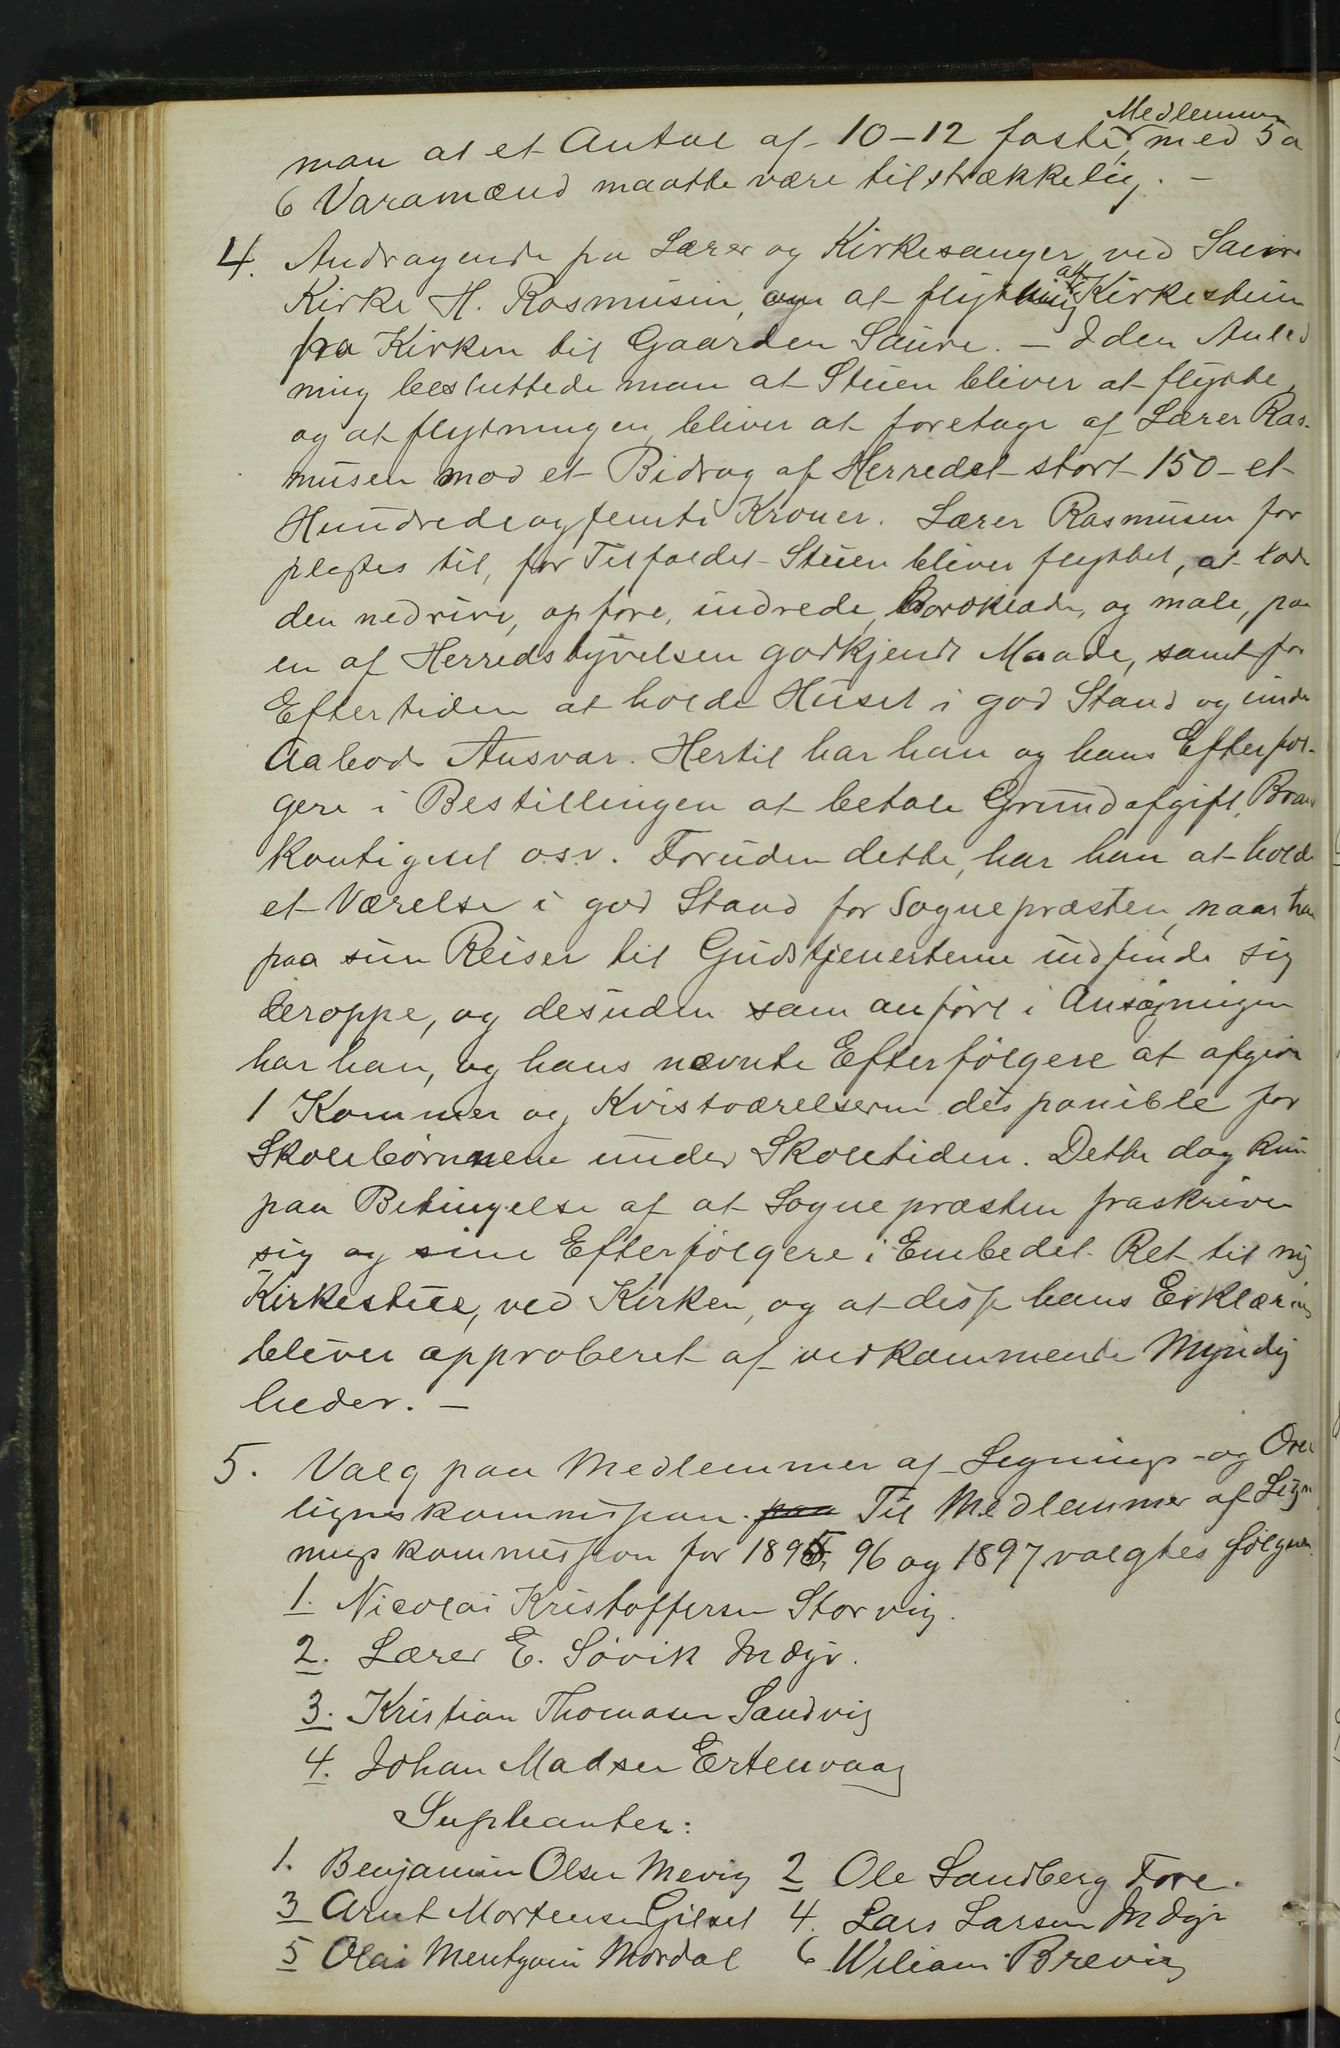 man at et Antal af 10-12 faste Medlemmer, med 5 a
6 Varamænd maatte være tilstrækkelig. -
4. Andragende fra Lærer og Kirkesanger ved Saura
Kirke H. Rasmusen, om at flytning af Kirkestuen
fra Kirken til Gaarden Saura. - I den Anled
ning besluttede man at Stuen bliver at flytte,
og at flytningen bliver at foretage af Lærer Ras-
musen mod et Bidrag af Herredet stort 150 - et
Hundredeogfemti Kroner. Lærer Rasmusen for
pligtes til, for Tilfældet Stuen bliver flyttet, at lade
den nedrive, opføre, indrede, Bordklæde, og male, paa
en af Herredsstyrelsen godkjendt Maade, samt for
Eftertiden at holde Huset i god Stand og under
Aabods Ansvar. Hertil har han og hans Efterføl-
gere i Bestillingen at betale Grundafgift, Brand
kontigent o.s.v. Foruden dette, har han at holde
et Værelse i god Stand for Sognepræsten, naar han
paa sine Reiser til Gudstjenesterne indfinde sig
deroppe, og desuden som anført i Ansøgningen
har han, og hans nævnte Efterfølgere at afgive
1 Kammer og Kvistværelserne disponible for
Skolebørnene under Skoletiden. Dette dog kun
paa Betingelse af at Sognepræsten fraskriver
sig og sine Efterfølgere i Embedet Ret til ny
Kirkestue, ved Kirken, og at disse hans Erklæring
bliver approberet af vedkommende Myndig
heder. -
5. Valg paa Medlemmer af Lignings- og Over
ligningskommission. paa Til Medlemmer af Lign
ingskommission for 1895, 96 og 1897 valgtes følgende
1. Nicolai Kristoffersen Storvig.
2. Lærer E. Søvik Indyr.
3. Kristian Thomasen Sandvig
4. Johan Madsen Ertenvaag
Supleanter:
1. Benjamin Olsen Mevig 2 Ole Sandberg Fore.
3 Arnt Mortensen Gilset 4. Lars Larsen Indyr
5 Olai Mentzoni Mordal 6 Wiliam Brevig